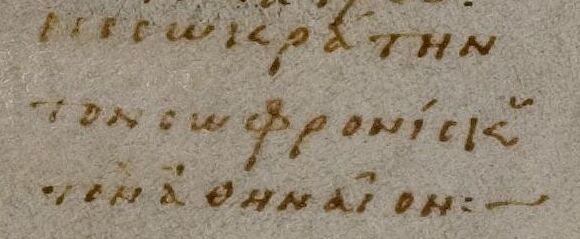 σωκράτην
τον σωφρονίσκου
τὸν ἀθηναῖον:—